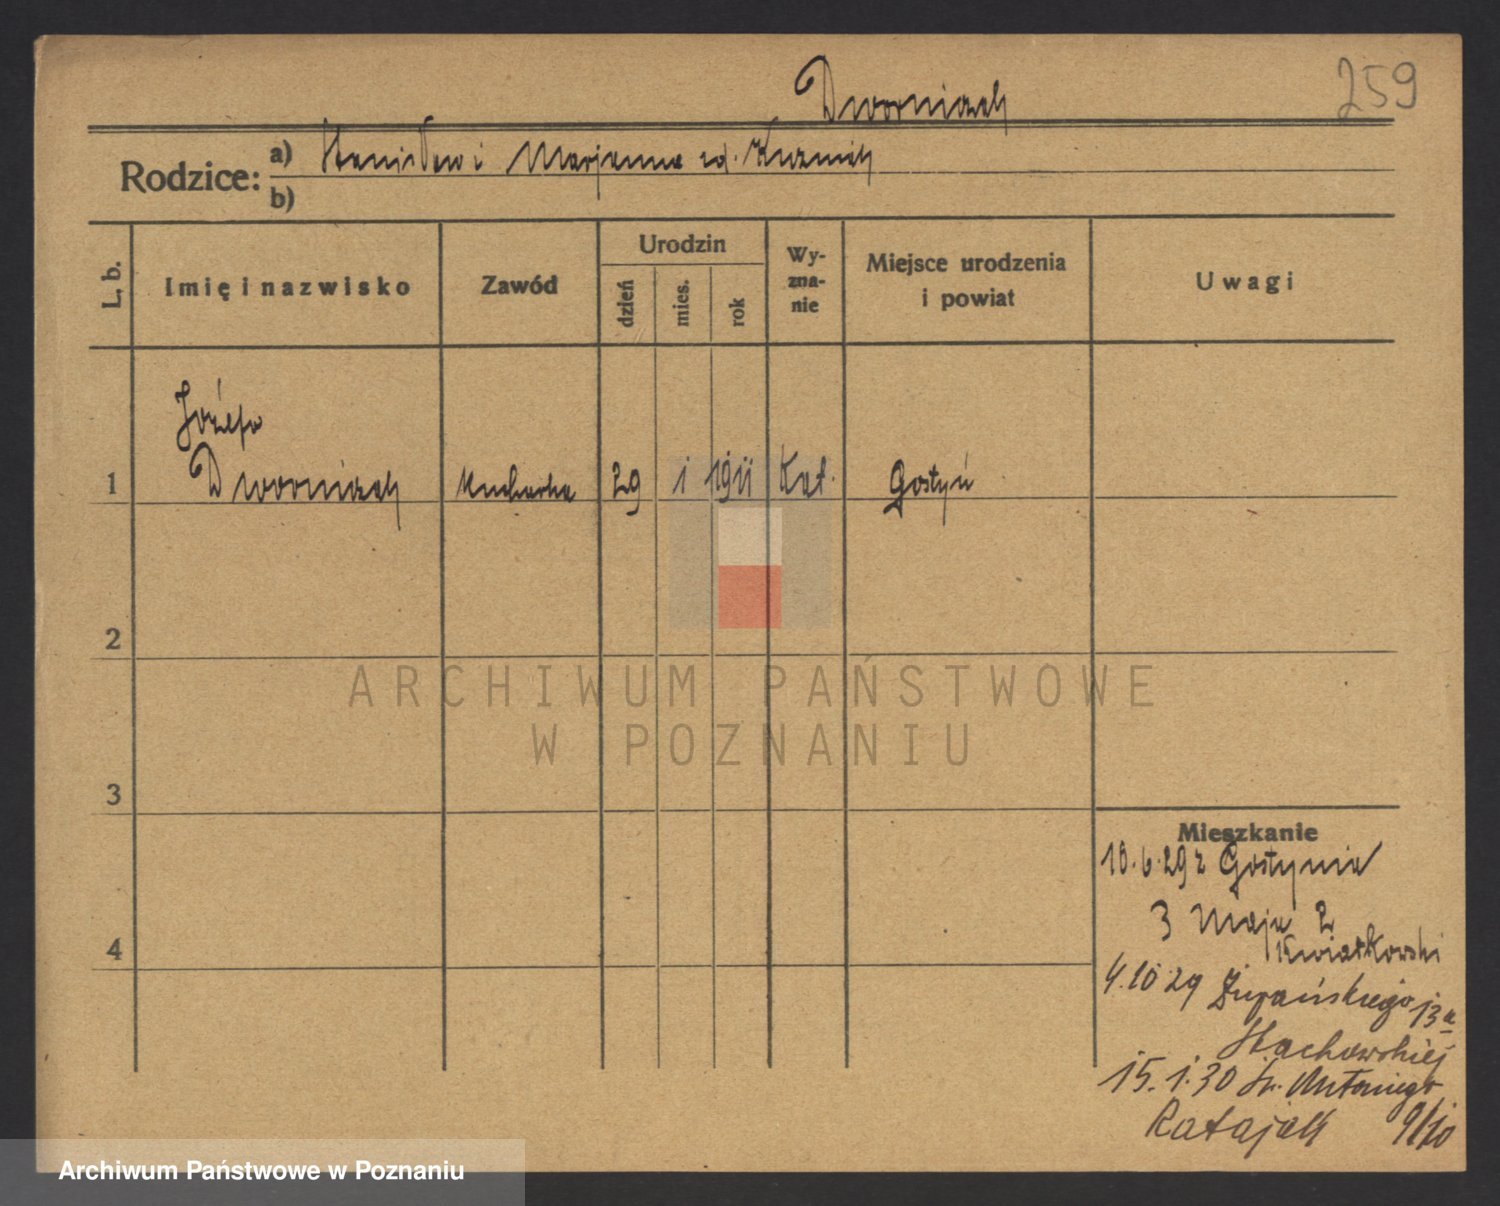 259
Dworniczak
Rodzice: a) Stanisław i Marjanna zd. Kuzniak
b)
L. b. Imię i nazwisko Zawód Urodzin dzień mies. rok Wyznanie Miejsce urodzenia i powiat Uwagi
Józefa
1 Dworniczak Kucharka 29 1 1911 Kat. Gostyń
2
ARCHIWUM PAŃSTWOWE
W POZNANIU
3
Mieszkanie
10.6.29 z Gostynia
3 Maja 2
Kwiatkowski
4
4.10 29 Żupańskiego 13a
Stachowskiej
15.1.30 Św. Antoniego
Ratajak 9/10
Archiwum Państwowe w Poznaniu